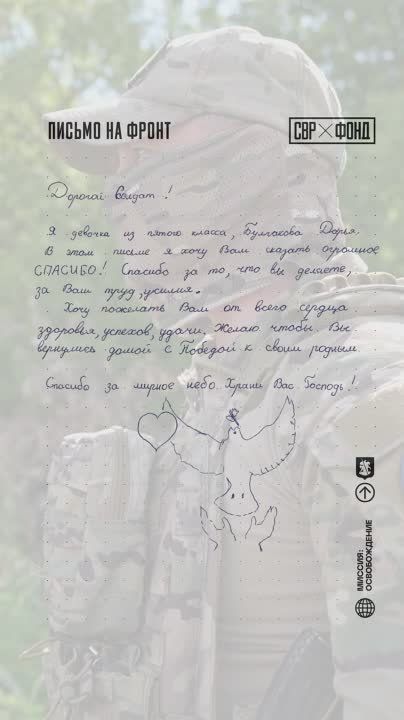 ПИСЬМО НА ФРОНТ
СВР ФОНД
Дорогой Солдат!
Я девочка из пятого класса, Булгакова Дарья.
В этом письме я хочу Вам сказать огромное
СПАСИБО! Спасибо за то, что вы делаете,
за Ваш труд, усилия.
Хочу пожелать Вам от всего сердца
здоровья, успехов, удачи. Желаю чтобы Вы
вернулись домой с Победой к своим родным.
Спасибо за мирное небо. Храни Вас Господь!
МИССИЯ:
ОСВОБОЖДЕНИЕ